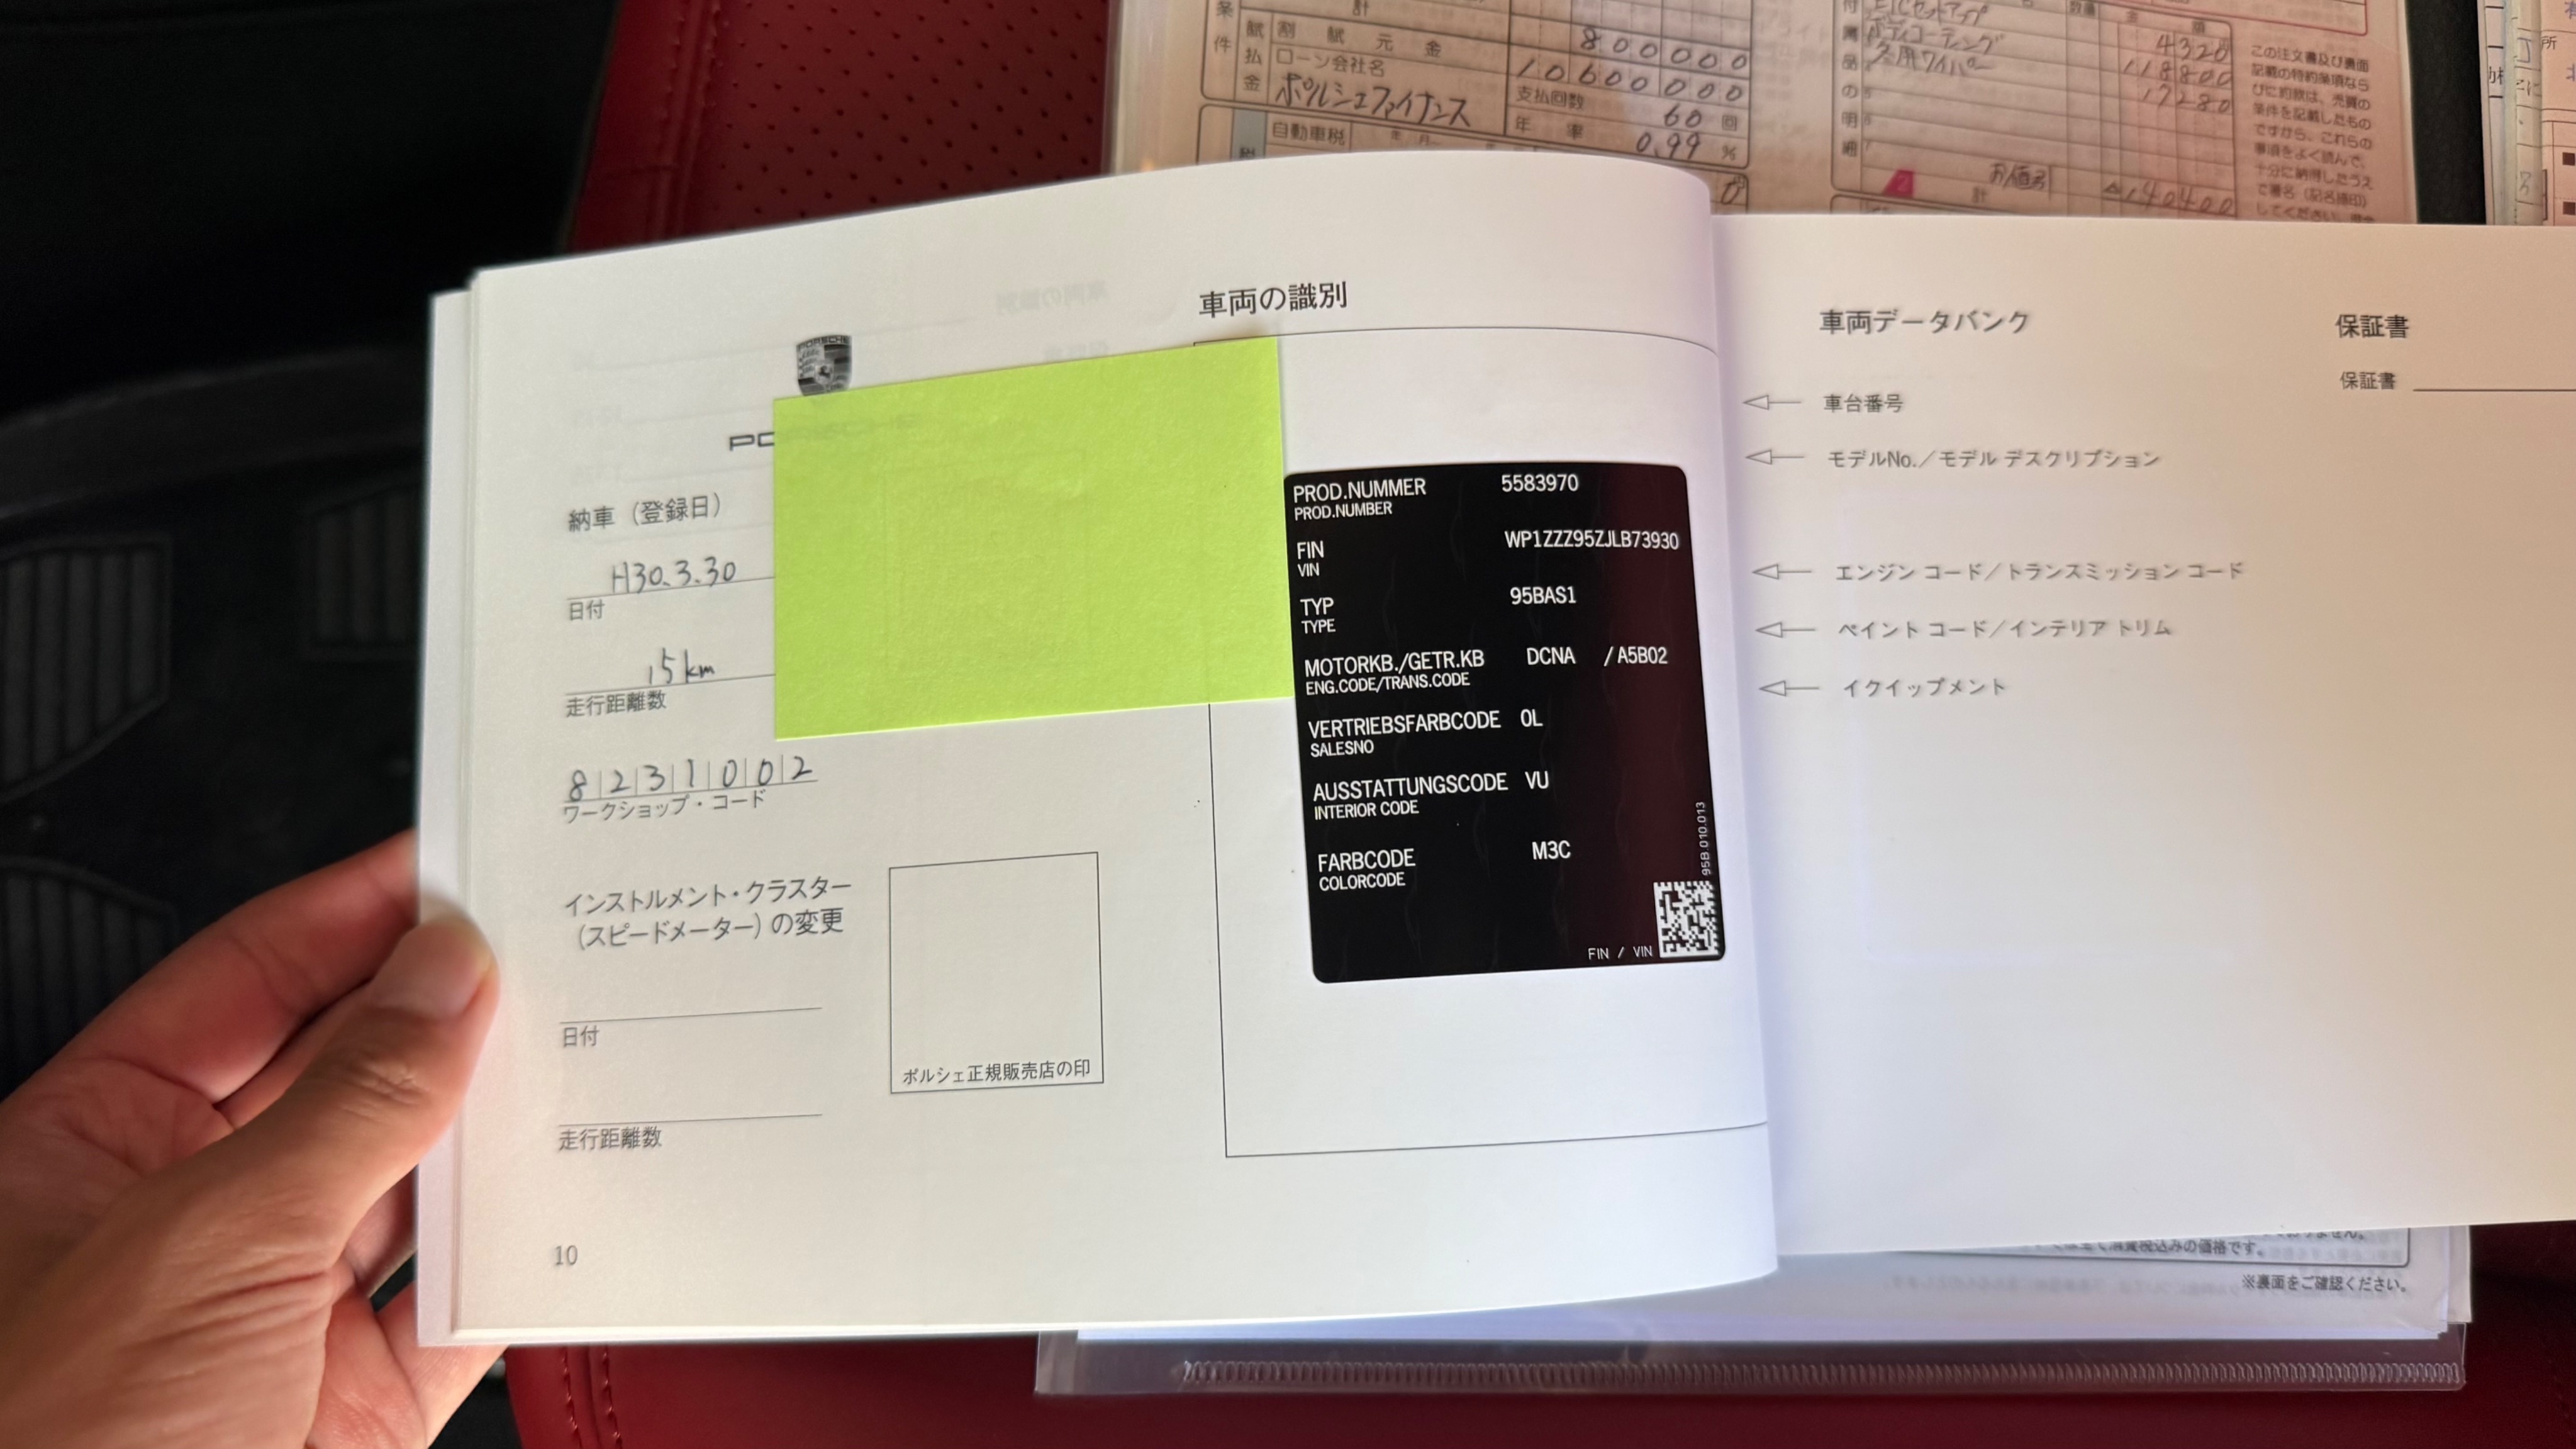 計
条
件
賦
払
金
割賦元金
800000
ローン会社名
10600000
ポルシェファイナンス
支払回数 60 回
年率 0.99 %
税
自動車税 年 月
0
付
属
品
の
明
細
ETCセットアップ 4320
ボディコーティング 118800
冬用ワイパー 17280
お値引
計 △140400
この注文書及び裏面
記載の特約条項なら
びに約款は、売買の
条件を記載したもの
ですから、これらの
事項をよく読んで、
十分に納得したうえ
で署名（記名捺印）
してください。
所
PORSCHE
PO
納車（登録日）
H30.3.30
日付
15km
走行距離数
8 2 3 1 0 0 2
ワークショップ・コード
インストルメント・クラスター
（スピードメーター）の変更
日付
走行距離数
ポルシェ正規販売店の印
10
車両の識別
PROD.NUMMER 5583970
PROD.NUMBER
FIN WP1ZZZ95ZJLB73930
VIN
TYP 95BAS1
TYPE
MOTORKB./GETR.KB DCNA /A5B02
ENG.CODE/TRANS.CODE
VERTRIEBSFARBCODE 0L
SALESNO
AUSSTATTUNGSCODE VU
INTERIOR CODE
FARBCODE M3C
COLORCODE
95B.010.013
FIN / VIN
車両データバンク
車台番号
モデルNo.／モデル デスクリプション
エンジン コード／トランスミッション コード
ペイント コード／インテリア トリム
イクイップメント
保証書
保証書
消費税込みの価格です。
※裏面をご確認ください。